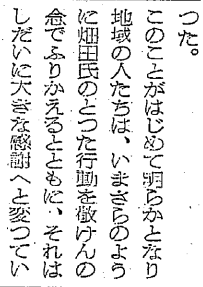 つた。
このことがはじめて明らかとなり
地域の人たちは、いまさらのよう
に畑田氏のとつた行動を敬けんの
念でふりかえるとともに、それは
しだいに大きな感謝へと変つてい